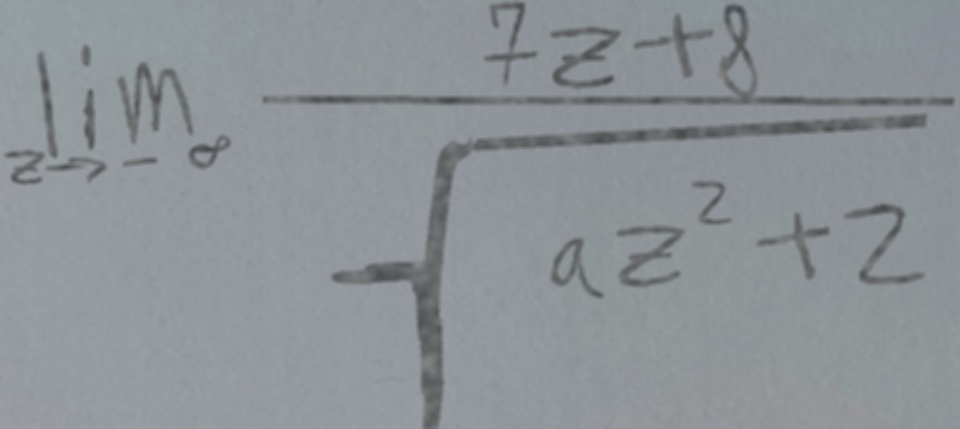 \lim_{z \to -\infty} \frac{7z+8}{\sqrt{az^2+2}}